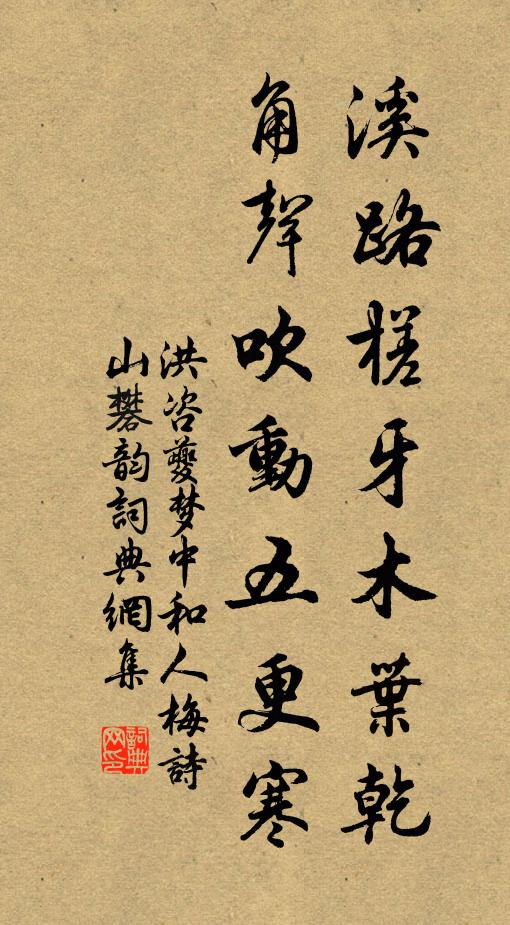 溪路槎牙木葉乾
角聲吹動五更寒
洪咨夔梦中和人梅詩
山礬韵詞典網集
詞典网印